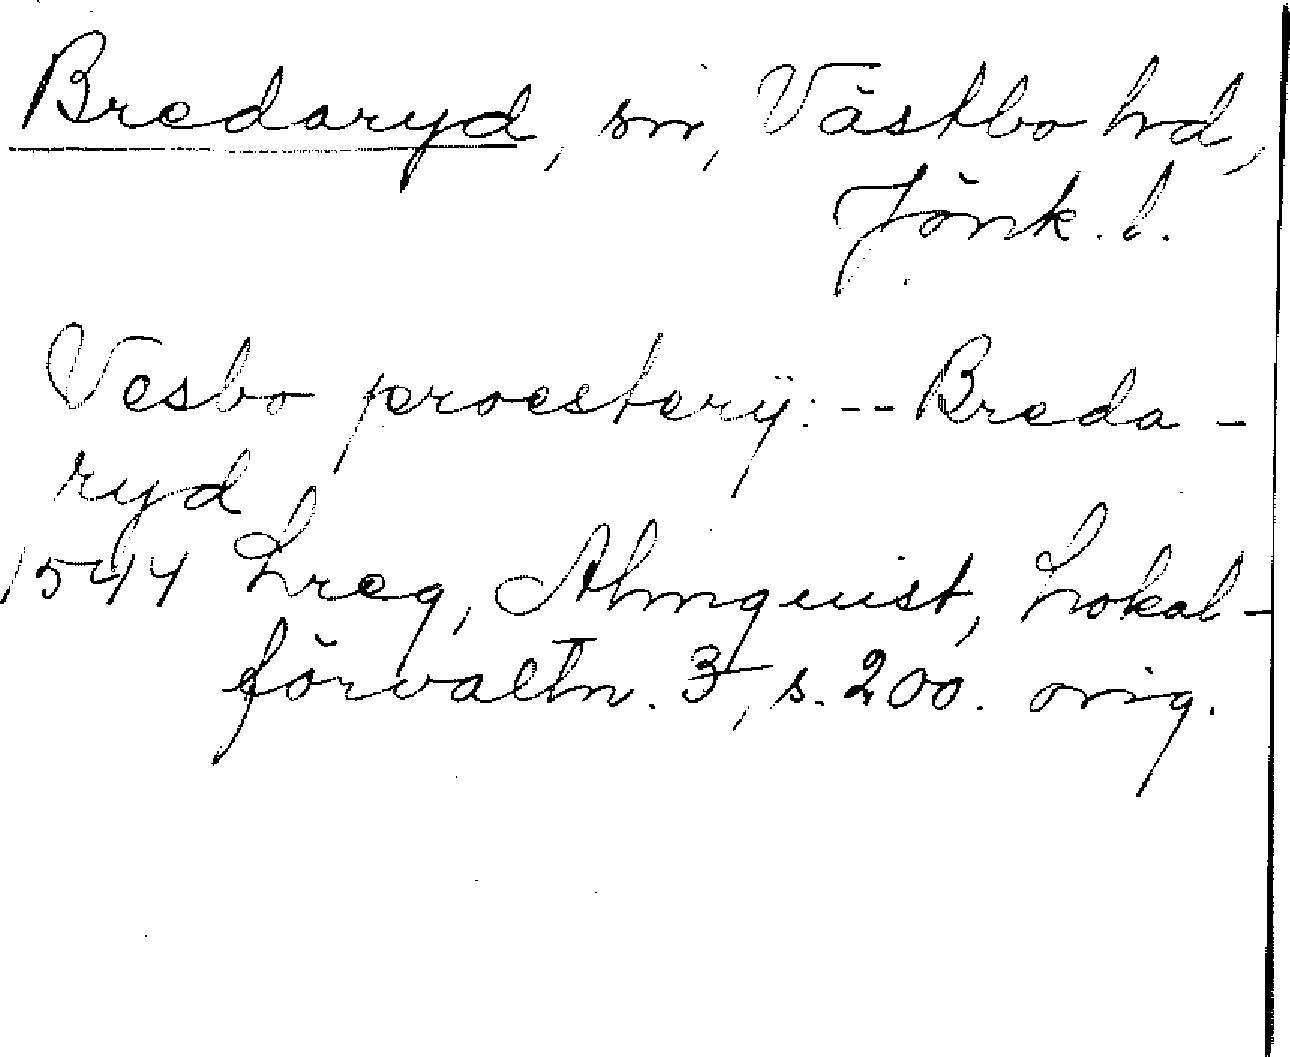 Bredaryd, sn, Västbo hd,
Jönk. l.
Vesbo proesterÿ: -- Breda-
ryd
1544 Lreg, Almquist, Lokal-
förvaltn. 3, s. 200. orig.